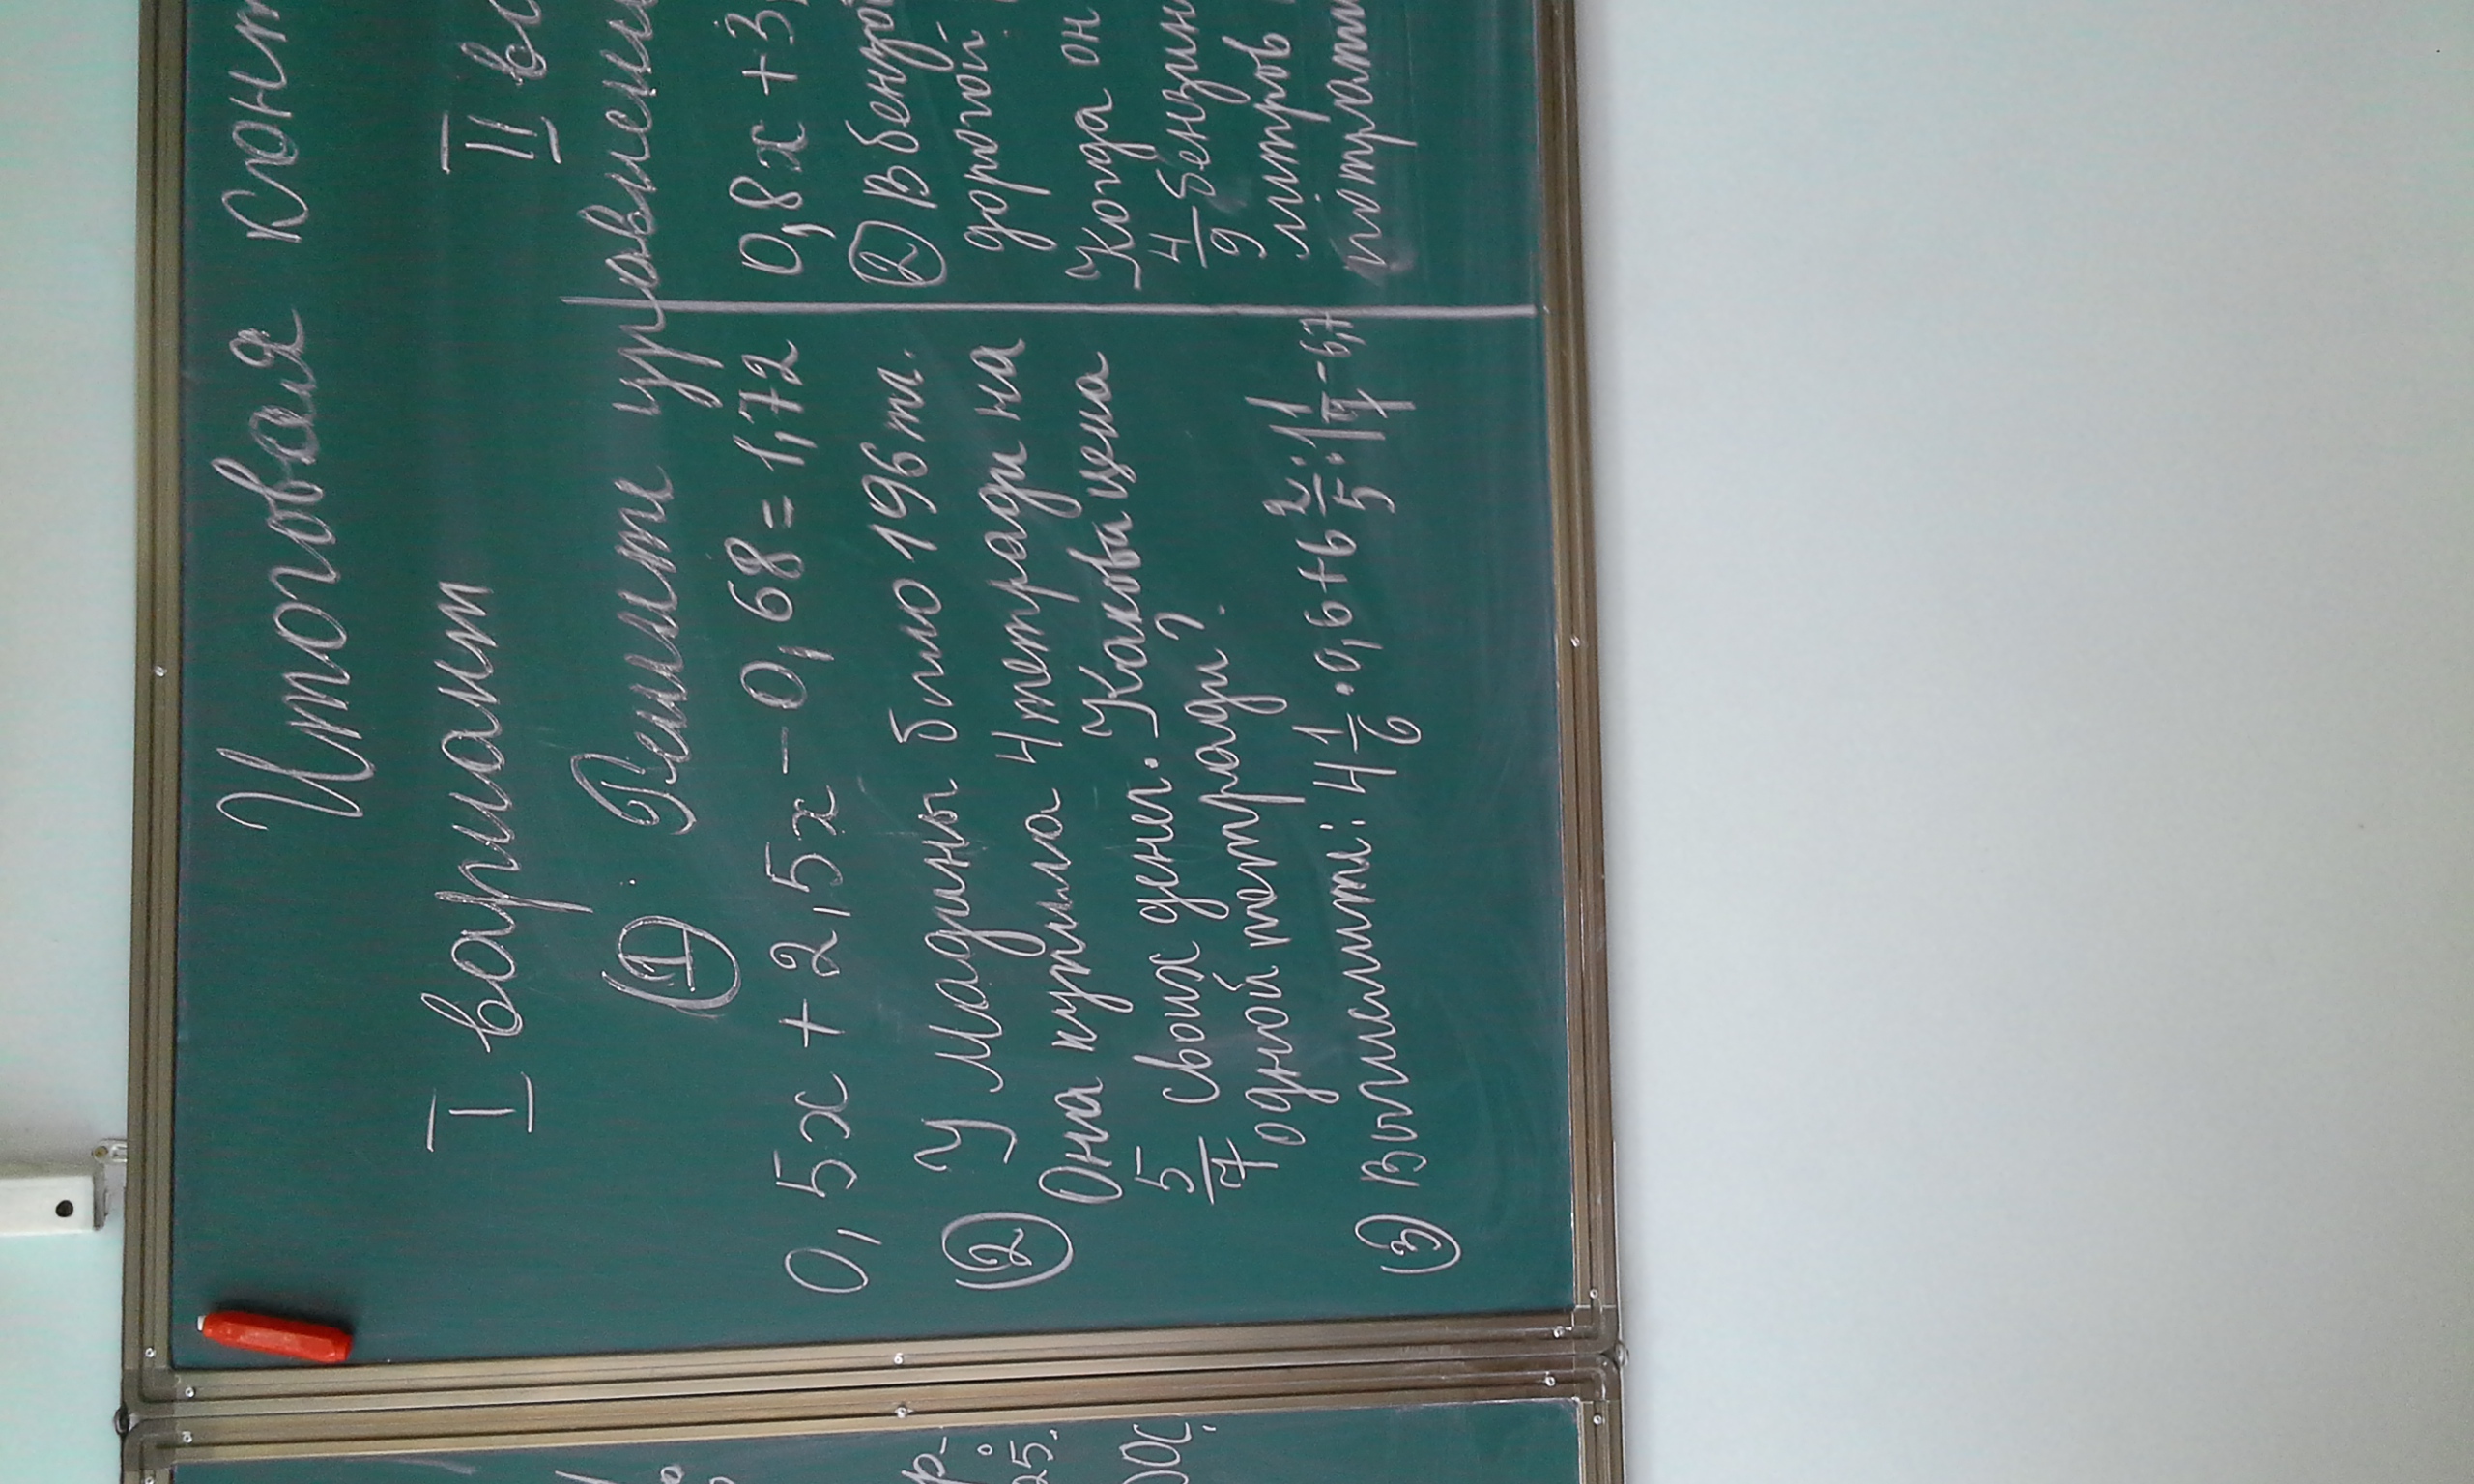 Итоговая конт
I вариант
II ва
① Решите уравнени
0,5x + 2,5x - 0,68 = 1,72
② У Мадины было 196 тг.
Она купила 4 тетради на
5/7 своих денег. Какова цена
одной тетради?
③ Вычислите: 4 1/6 · 0,6 + 6 2/5 : 1 1/
0,8x + 3,
② В бензо
дорогой
Когда он
4/9 бензин
литров
потрати
25.